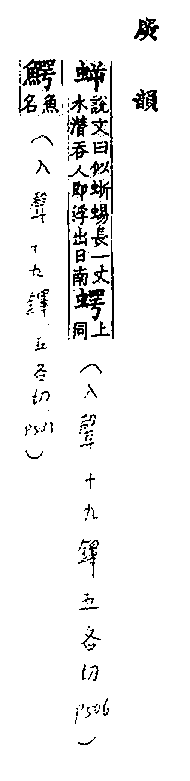 廣韻
蝉說文曰似蜥蜴長一丈水潛吞人即浮出日南蝉上同(入聲十九鐸五各切P506)
鰐魚名(入聲十九鐸五各切P507)